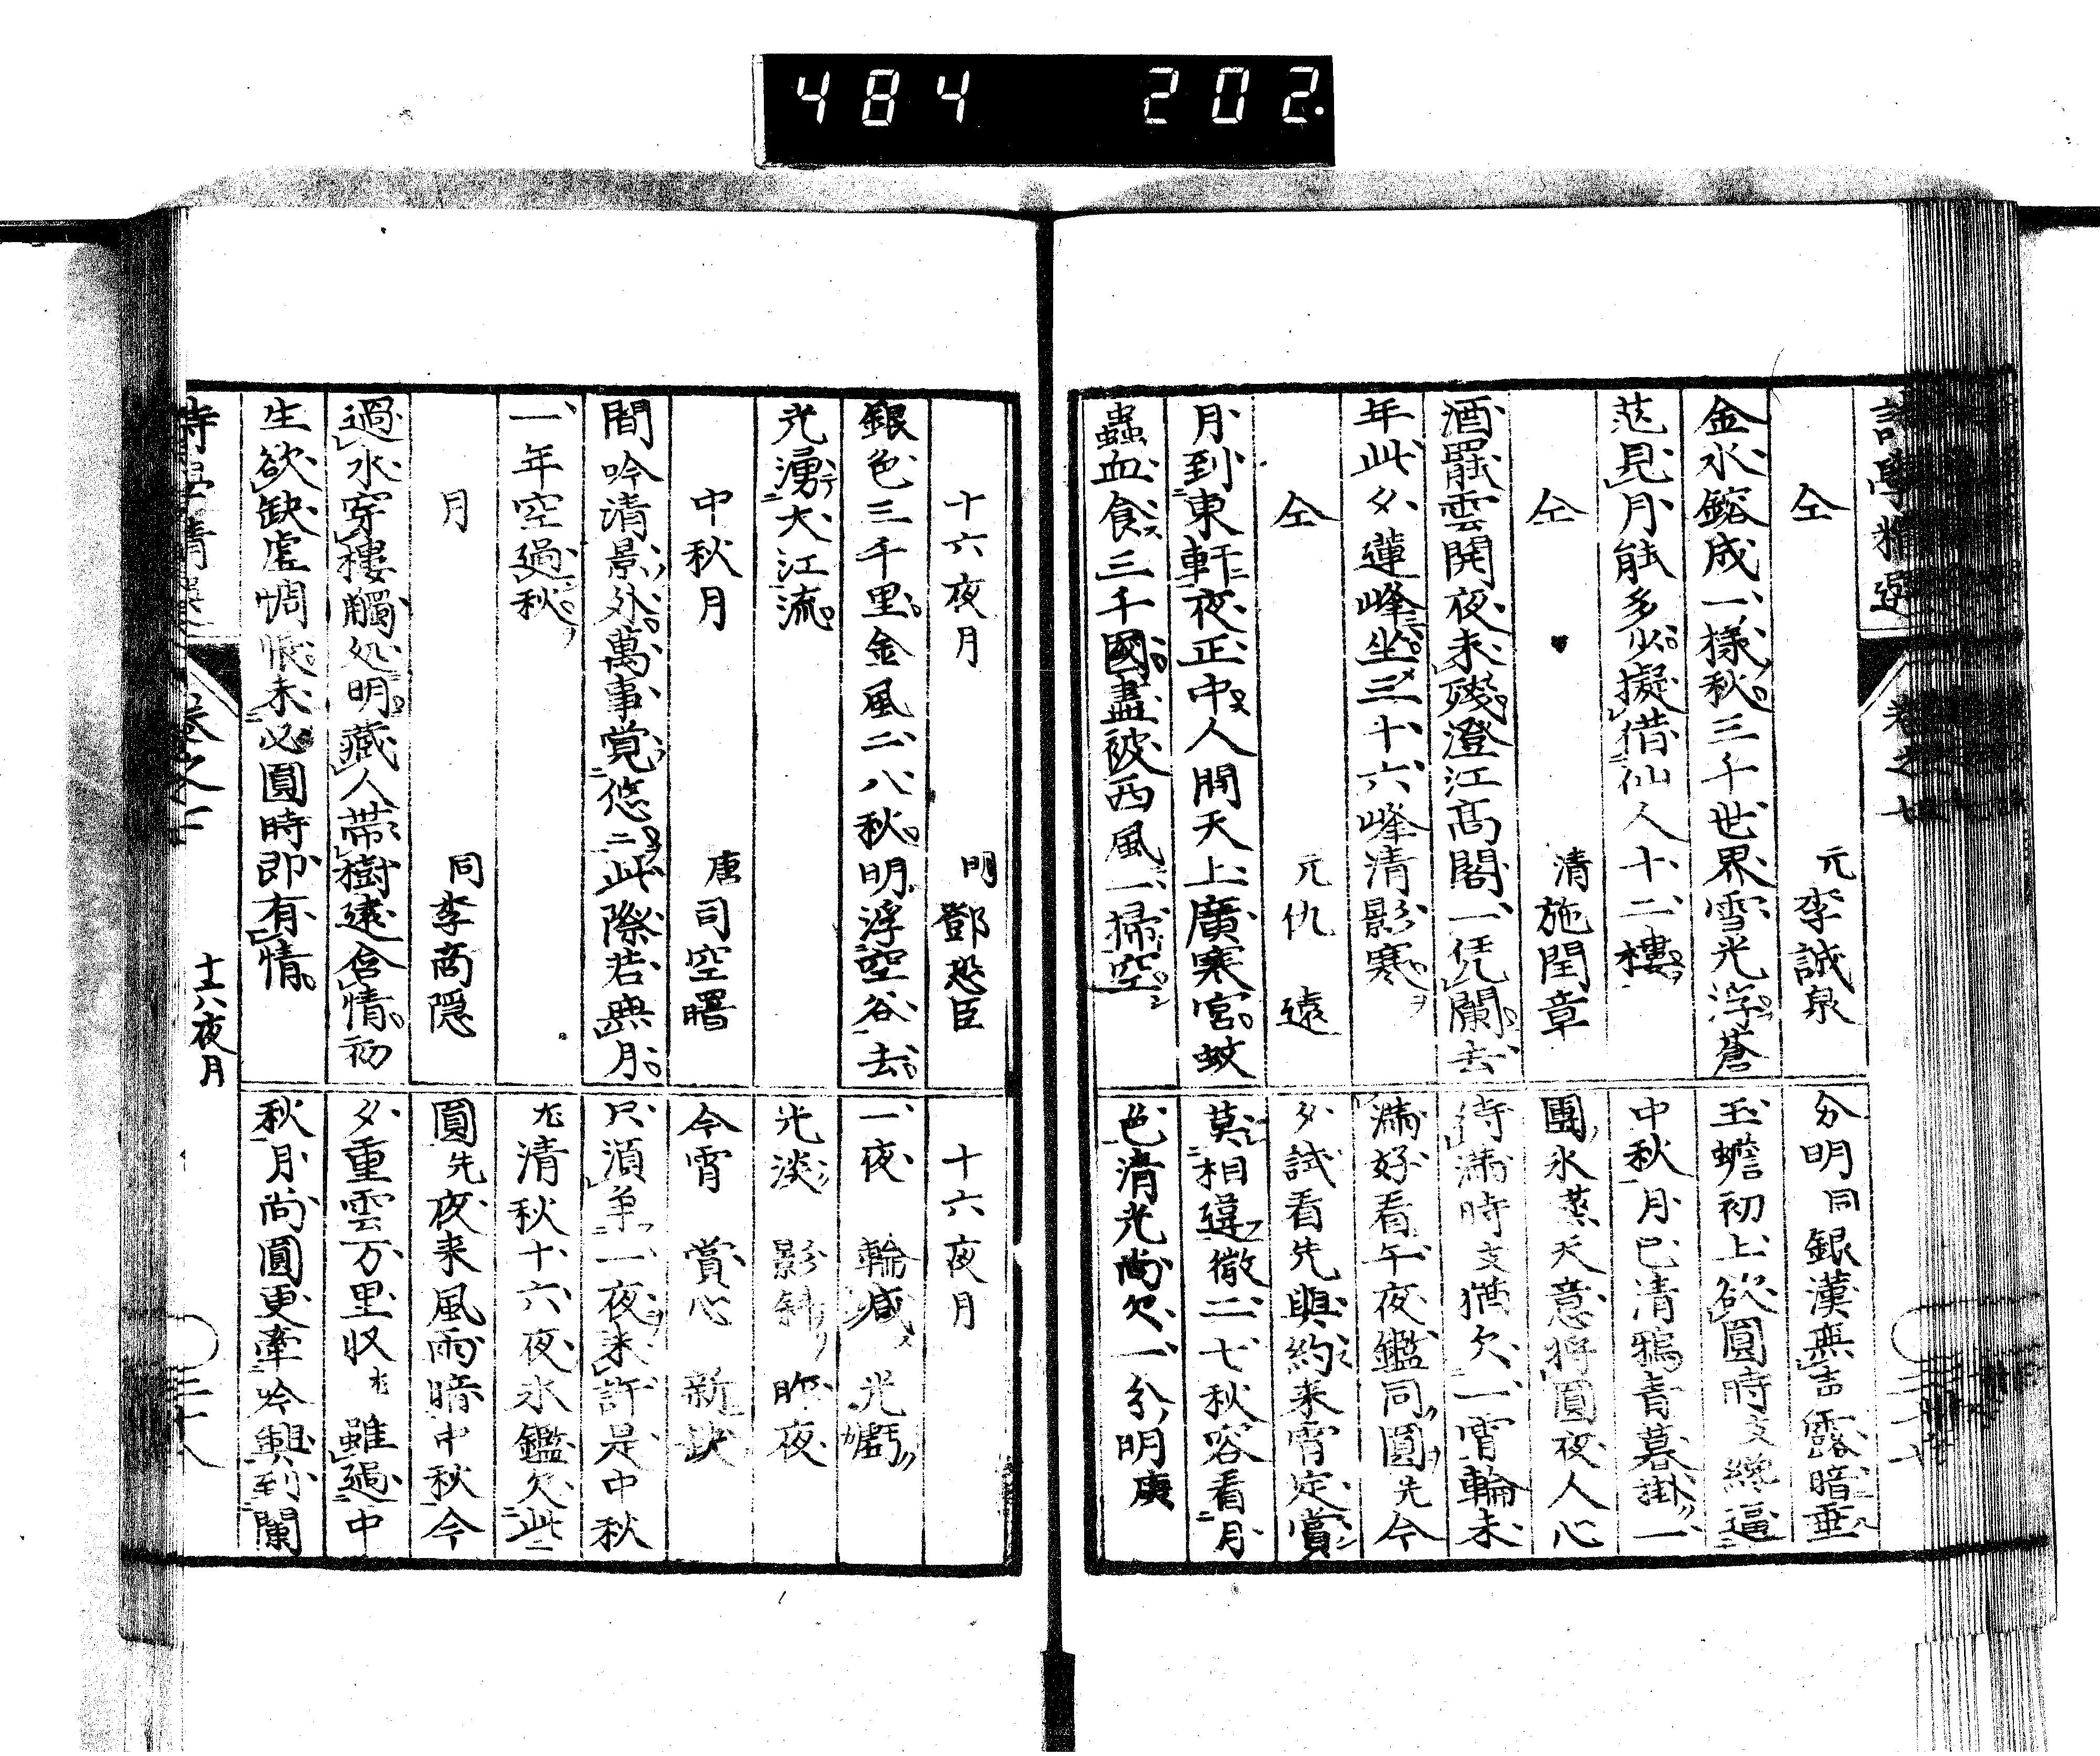 484 202.
詩學精選 卷之七
仝 元 李誠泉
金水鎔成一樣秋三千世界雪光浮蒼
茫見月能多少擬借仙人十二樓
仝 清 施閏章
酒罷雲開夜未殘澄江高閣一凭闌去
年此夕蓮峰坐三十六峰清影寒
仝 元 仇遠
月到東軒夜正中人間天上廣寒宮蚊
蟲血食三千國盡被西風一掃空
分明同銀漢無声露暗垂
玉蟾初上欲圓時文纔逼
中秋月已清鴉青暮掛一
團氷蒸天意將圓夜人心
待滿時支猶欠一宵輪未
滿好看午夜鑑同圓先今
夕試看先與約来宵定賞
莫相違徵二七秋容看月
色清光尚欠一分明庚
十六夜月 明 鄧恐臣
銀色三千里金風二八秋明浮空谷去
光湧大江流
中秋月 唐 司空曙
間吟清景外萬事覚悠〻此際若無月
一年空過秋
月 同 李商隱
過水穿樓觸処明藏人帶樹遠含情初
生欲缺虚惆悵未必圓時即有情
十六夜月
一夜 輪减 光虧
光淡 影斜 昨夜
今宵 賞心 新缺
只須争一夜来許是中秋
尤清秋十六夜氷鑑欠此
圓先夜来風雨暗中秋今
夕重雲万里収 雖過中
秋月尚圓更牽吟興到闌
十六夜月
三十八